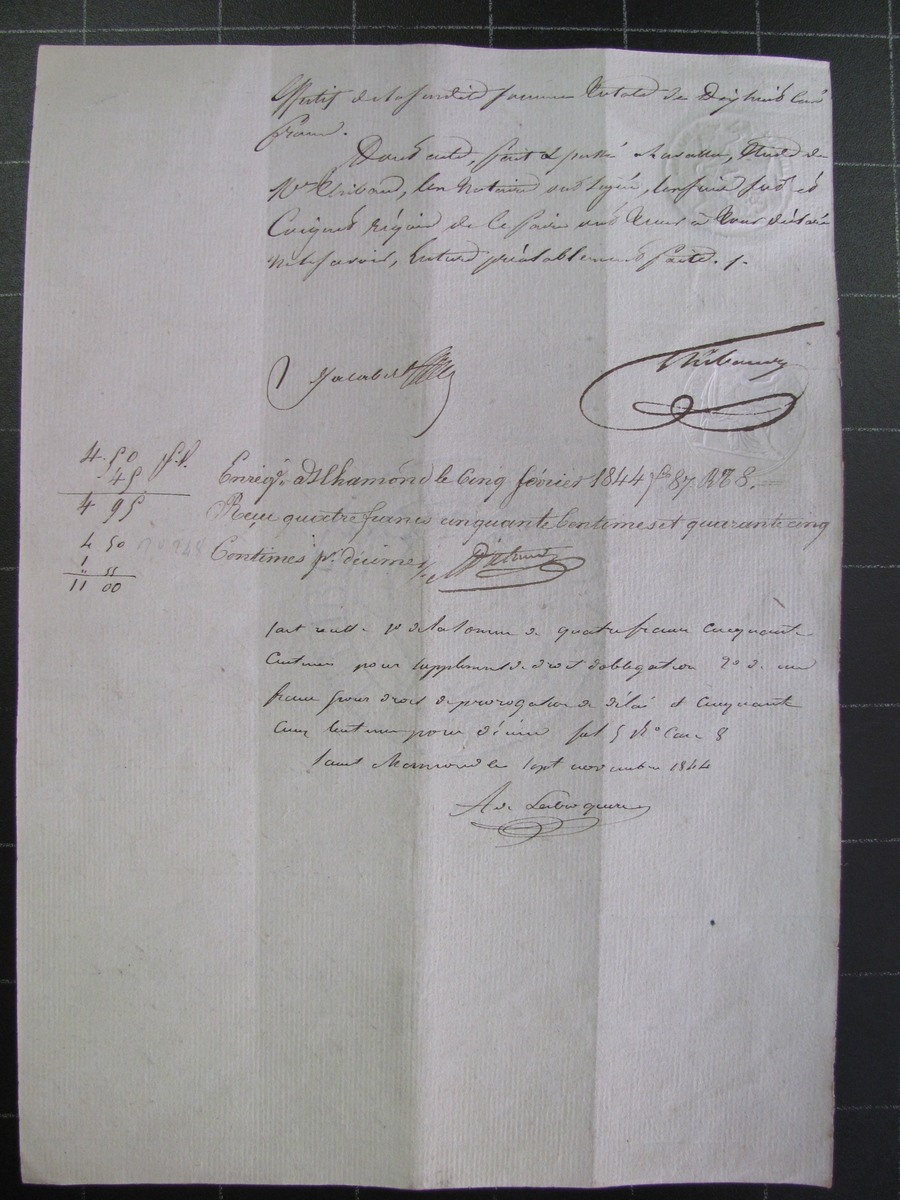 effectif de la susdite somme totale de dix huit cent
francs.
Dont acte, fait & passé à, Étude de
Me Thibaud, l'un notaire soussigné,
Conjoints requis de le faire ont nous déclaré
ne le savoir, lecture préalablement faite. /.
Jalabert
Thibaud
4.50
.45
4 95
4 50
1 "
" 55
11 00
Enregé. à St Chamond le Cinq février 1844 fo 87 Ro C 8.
Reçu quatre francs cinquante Centimes et quarante cinq
Centimes pr. décime
fait recette 1o de la somme de quatre francs cinquante
Centimes pour supplément de droit d'obligation 2o de un
franc pour droit de prorogation de délai et cinquante
cinq centimes pour décime fol 5 Ro Case 8
Saint Chamond le sept novembre 1844